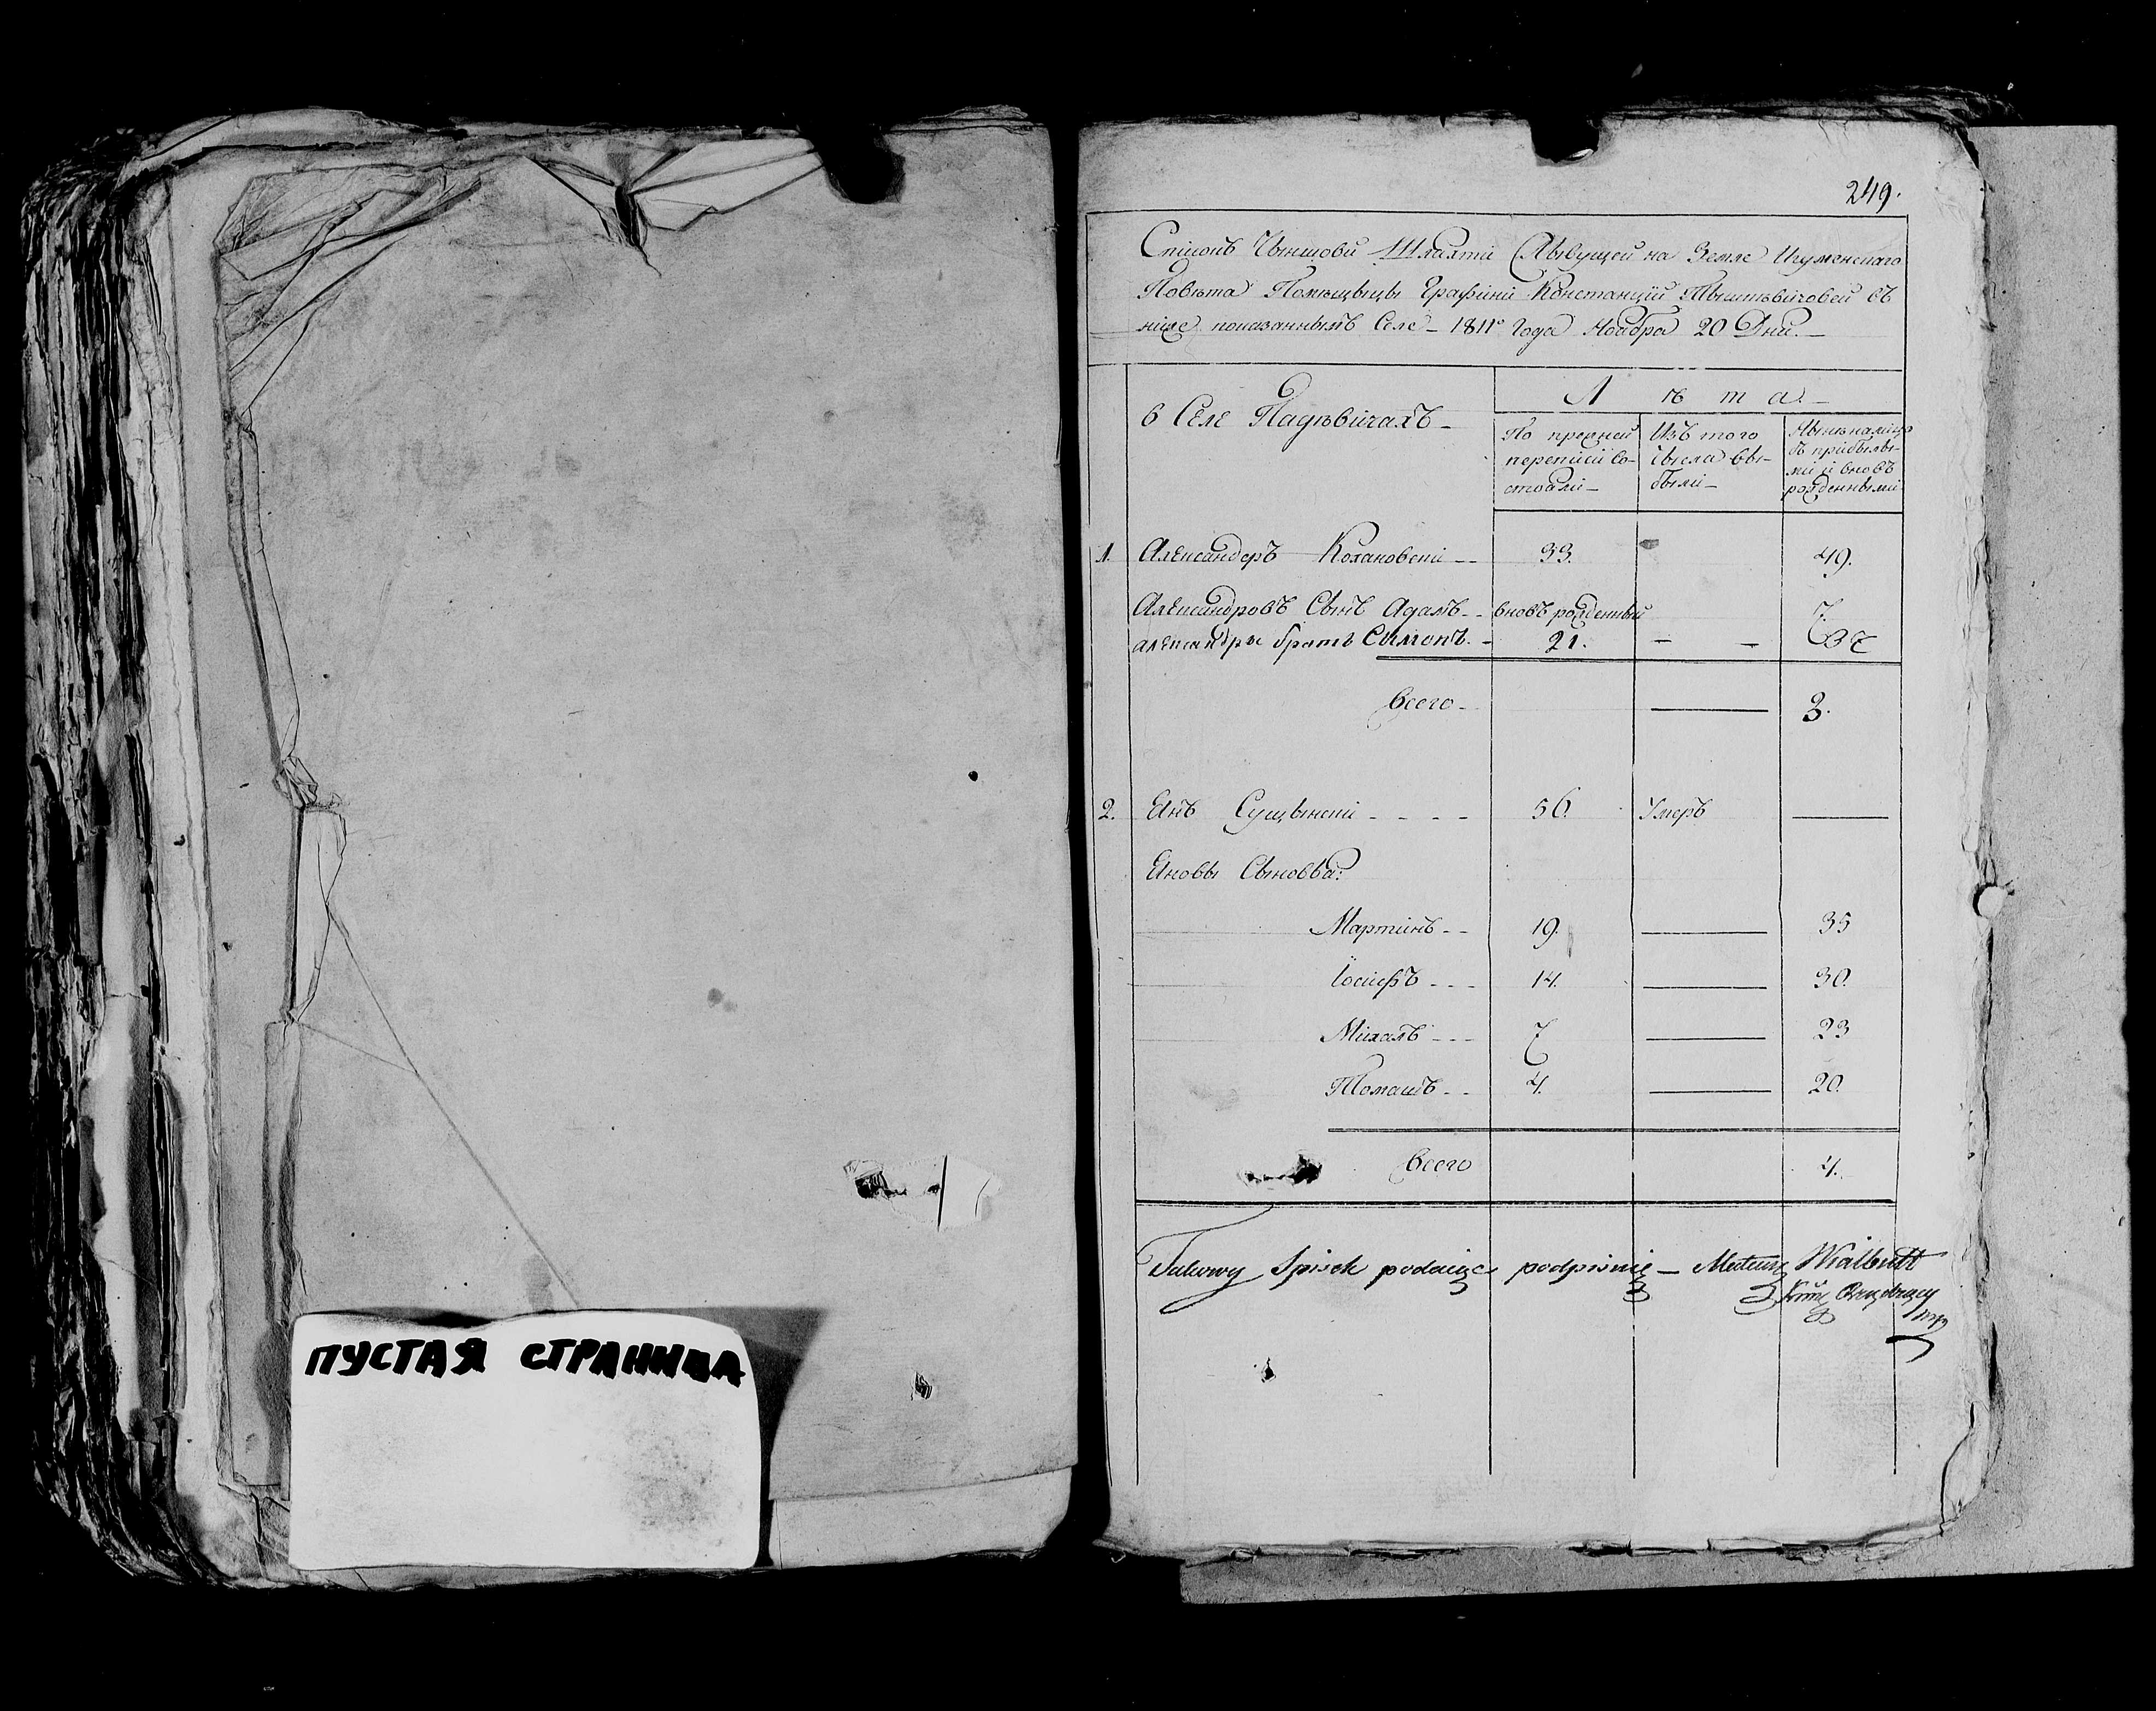 ПУСТАЯ СТРАНИЦА
249.
Списокъ Чыншови Шляхти Жывущей на Земле Игуменскаго
Повѣта Помѣщыцы Графини Констанции Тышкѣвичовой въ
ниже показаннымъ Селе – 1811º Года Ноябра 20 Дня. –
в Селе Падѣвичахъ –
Л ѣ т а. –
По прежней переписи со-
стояли –
Изъ того
числа вы-
были –
Нынѣ налицо
съ прибылы-
ми и вновъ
рожденными
1. Александеръ Кохановски – – 33. 49.
Александровъ Сынъ Адамъ – – вновъ рожденный 7.
Александра братъ Симонъ. – 21. – – 37
Всего – 3.
2. Янъ Сущынски – – – – 56. Умеръ
Яновы Сыновья:
Мартинъ – – 19. 35
Іосифъ – – – 14. 30.
Михалъ – – – 7 23
Томашъ – – 4. 20.
Всего 4.
Takowy Spisek podaiąc podpisuię – Mateusz Wialbutt